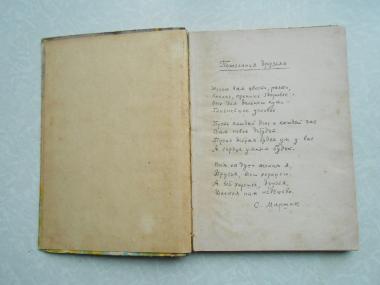 Пожелания друзьям
Желаю вам цвести, расти,
Копить, крепить здоровье.
Оно для дальнего пути -
Главнейшее условье.
Пусть каждый день и каждый час
Вам новое добудет.
Пусть добрым будет ум у вас,
А сердце умным будет.
Вам от души желаю я,
Друзья, всего хорошего.
А всё хорошее, друзья,
Дается нам недёшево.
С. Маршак